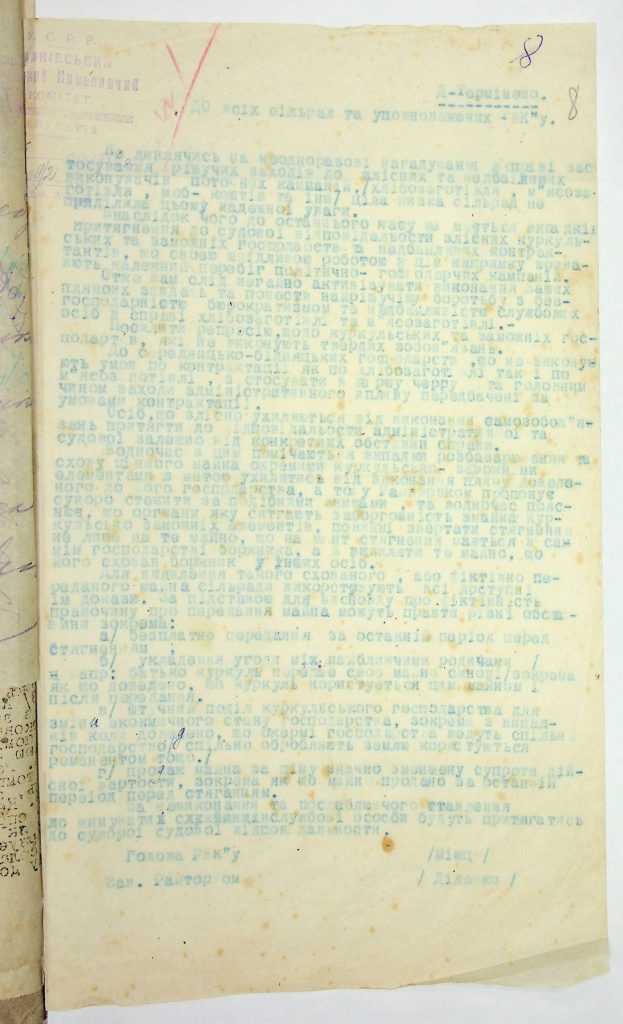 У. С. Р. Р.
КОМІТЕТ
8
8
До всіх сільрад та уповноважених РВК"у.
Не дивлячись на неодноразові нагадування в справі зас
тосування рішучих заходів до злісних та недбайливих
виконавців поточних кампаній /хлібозаготівля, м"ясоза-
готівля, моб. коштів та інш/ ціла низка сільрад не
приділила цьому належної уваги.
Внаслідок чого до останнього часу не мається випадків
притягнення до судової відповідальности злісних куркуль-
ських та заможніх господарств та недбайливих контрак-
тантів, що своєю шкідливою роботою в цій напрямку зрива-
ють належний перебіг політично-господарчих кампаній.
Отже вам слід негайно активізувати виконання даних
плянових завдань та повести найрішучішу боротьбу з без-
господарністю бюрократизмом та недбайливістю службових
осіб в справі хлібозаготівлі та м"ясозаготівлі.-
Посилити репресію щодо куркульських та заможніх гос-
подарств, які не виконують твердих зобов"язань.
До середняцько-бідняцьких господарств, що не виконую
ють умов по контрактації як по хлібозаготівлі так і по
м"ясозаготівлі, застосувати в першу чергу та головним
чином заходи адміністративного впливу передбачені за
умовами контрактації.
Осіб, що злісно ухиляються від виконання самозобов"я-
зань притягти до відповідальности адміністративної та
судової залежно від конкретних обставин справи.
Водночас з цим помічаються випадки розбазарювання та
схову цінного майна окремими куркульсько-заможніми
елементами з метою ухилитись від виконання пляну доведе-
ного до його господарства, а тому райвиконком пропонує
суворо стежити за подібними явищами, та водночас пояс-
нює, що органи яку стягають заборгованість з майна кур-
кульсько заможніх елементів, повинні звертати стягнення
не лише на те майно, що на момент стягнення мається в са-
мім господарстві боржника, а й виявляти те майно, що
його сховав боржник у інших осіб.
Для виявлення такого схованого, або фіктивно пе-
реданого майна сільради використовують всі доступні
їм докази. За підставою для висновку про фіктивність
правочину про передання майна можуть правити різні обста-
вини зокрема:
а/ безплатне передання за останній період перед
стягненням;
б/ укладення угоди між найближчими родичами /
напр: батько куркуль передає своє майно синові/зокрема
як що доведено, що куркуль користується цим майном і
після передання.
в/ фіктивний поділ куркульського господарства для
зміни економічного стану господарства, зокрема з випад-
ків коли доведено, що окремі господарства ведуть спільне
господарство /спільно обробляють землю користуються
реманентом тощо./
г/ продаж майна за ціну значно зменшену супроти дій-
сної вартости, зокрема як що майно продано за останній
період перед стяганням.
За невиконання та послаблюючого ставлення
до винуватців службові особи будуть притягатись
до суворої судової відповідальности.
Голова РВК"у
Зав. Райторгом / Діденко /